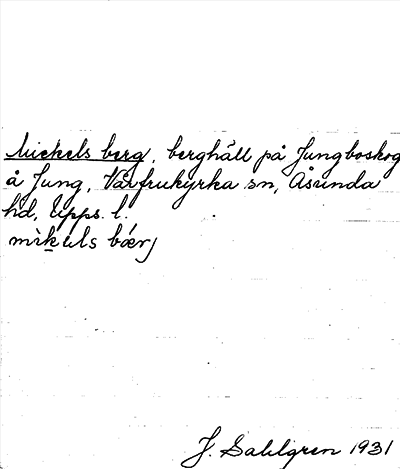 Mickels berg, berghäll på Jungboskog
å Jung, Vårfrukyrka sn, Åsunda
hd, Upps. l.
mìkəls bǽrj
J. Sahlgren 1931